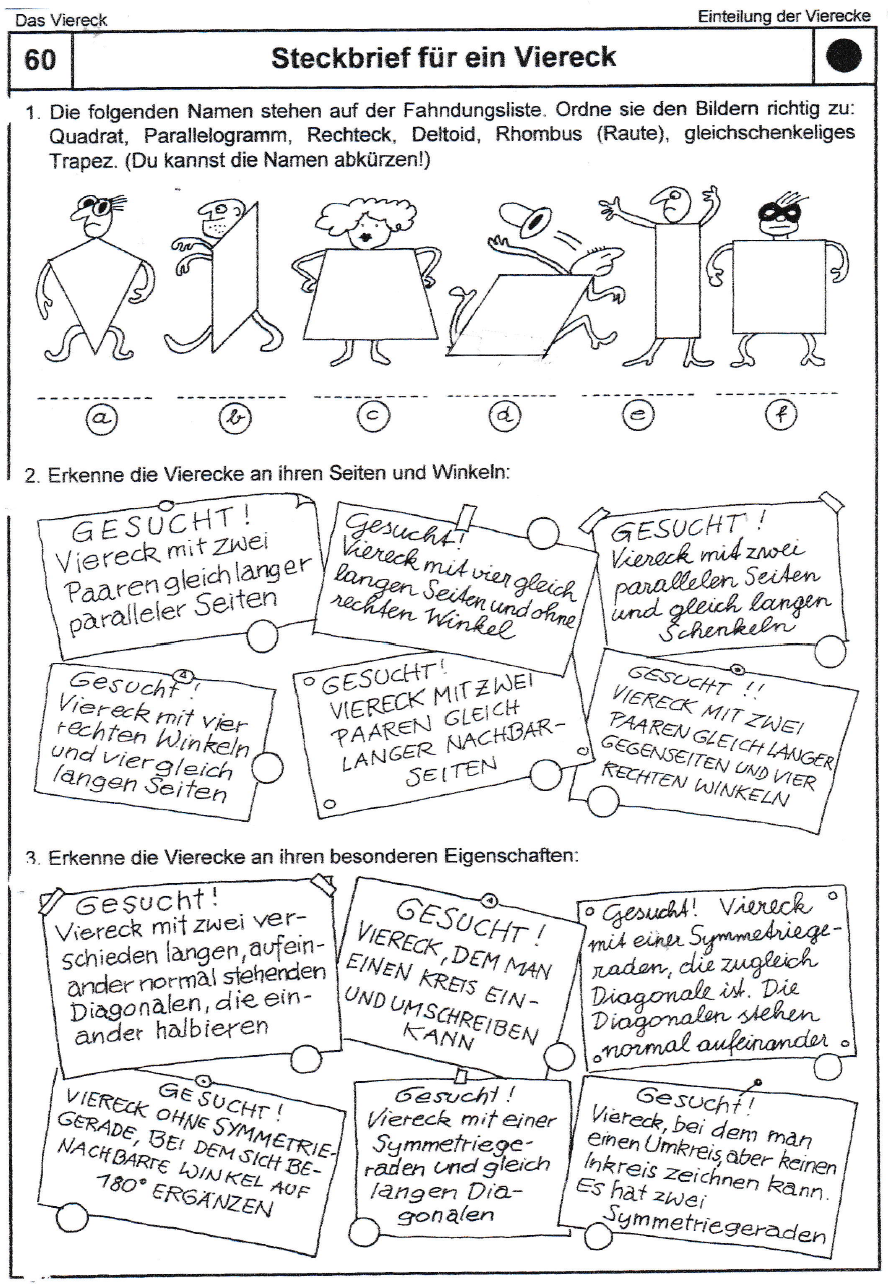 Das Viereck
Einteilung der Vierecke
60
Steckbrief für ein Viereck
1. Die folgenden Namen stehen auf der Fahndungsliste. Ordne sie den Bildern richtig zu:
Quadrat, Parallelogramm, Rechteck, Deltoid, Rhombus (Raute), gleichschenkeliges
Trapez. (Du kannst die Namen abkürzen!)
a b c d e f
2. Erkenne die Vierecke an ihren Seiten und Winkeln:
GESUCHT!
Viereck mit zwei
Paaren gleich langer
paralleler Seiten
Gesucht!
Viereck mit vier gleich
langen Seiten und ohne
rechten Winkel
GESUCHT!
Viereck mit zwei
parallelen Seiten
und gleich langen
Schenkeln
Gesucht!
Viereck mit vier
rechten Winkeln
und vier gleich
langen Seiten
GESUCHT!
VIERECK MIT ZWEI
PAAREN GLEICH
LANGER NACHBAR-
SEITEN
GESUCHT!!
VIERECK MIT ZWEI
PAAREN GLEICH LANGER
GEGENSEITEN UND VIER
RECHTEN WINKELN
3. Erkenne die Vierecke an ihren besonderen Eigenschaften:
Gesucht!
Viereck mit zwei ver-
schieden langen, aufein-
ander normal stehenden
Diagonalen, die ein-
ander halbieren
GESUCHT!
VIERECK, DEM MAN
EINEN KREIS EIN-
UND UMSCHREIBEN
KANN
Gesucht! Viereck
mit einer Symmetriege-
raden, die zugleich
Diagonale ist. Die
Diagonalen stehen
normal aufeinander
GESUCHT!
VIERECK OHNE SYMMETRIE-
GERADE, BEI DEM SICH BE-
NACHBARTE WINKEL AUF
180° ERGÄNZEN
Gesucht!
Viereck mit einer
Symmetriege-
raden und gleich
langen Dia-
gonalen
Gesucht!
Viereck, bei dem man
einen Umkreis, aber keinen
Inkreis zeichnen kann.
Es hat zwei
Symmetriegeraden